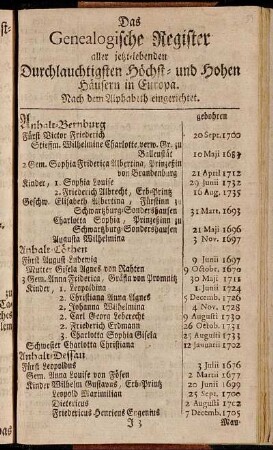 Das
Genealogische Register
aller jetzt-lebenden
Durchlauchtigsten Höchst- und Hohen
Häusern in Europa.
Nach dem Alphabeth eingerichtet.
Anhalt-Bernburg gebohren
Fürst Victor Friederich 20 Sept. 1700
Stieffm. Wilhelmine Charlotte verw. Gr. zu
Ballenstät 10 Maji 1683
2 Gem. Sophia Friderica Albertina Prinzeßin
von Brandenburg 21 April 1712
Kinder, 1. Sophia Louise 29 Junii 1732
2. Friederich Albrecht, Erb-Printz 16 Aug. 1735
Geschw. Elisabeth Albertina, Fürstinn zu
Schwartzburg-Sondershausen 31 Mart. 1693
Charlotta Sophia, Printzeßinn zu
Schwartzburg-Sondershausen 21 Maji 1696
Augusta Wilhelmina 3 Nov. 1697
Anhalt-Cöthen
Fürst August Ludewig 9 Junii 1697
Mutter Gisela Agnes von Rahten 9 Octob. 1670
3 Gem. Anna Friderica, Gräfin von Promnitz 30 Maji 1711
Kinder, 1. Leopoldina 1 Junii 1724
2. Christiana Anna Agnes 5 Decemb. 1726
2. Johanna Wilhelmina 4 Nov. 1728
2. Carl Georg Leberecht 9 Augusti 1730
2. Friederich Erdmann 26 Octob. 1731
3. Charlotta Sophia Gisela 25 Augusti 1733
Schwester Charlotta Christiana 12 Januarii 1702
Anhalt-Dessau
Fürst Leopoldus 3 Julii 1676
Gem. Anna Louise von Fösen 2 Martii 1677
Kinder Wilhelm Gustavus, Erb-Printz 20 Junii 1699
Leopold Maximilian 25 Sept. 1700
Dietericus 2 Augusti 1702
Fridericus-Henricus Eugenius 7 Decemb. 1705
J 3 Mau-